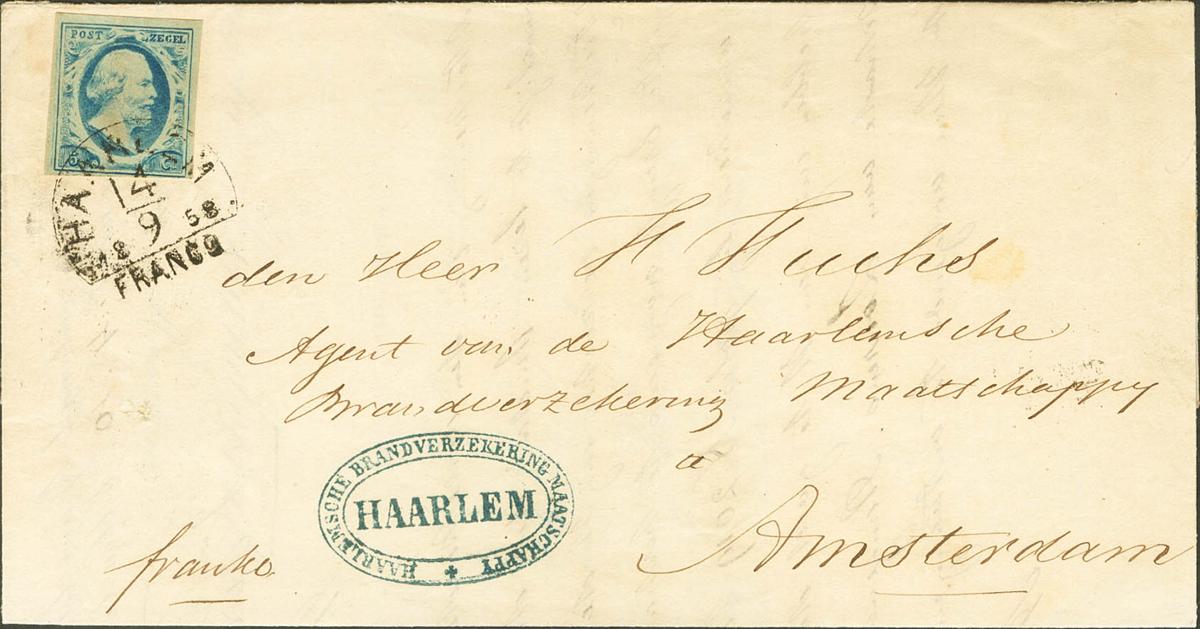 POST ZEGEL
5 C
HAARLEM
4
9
18 58
FRANCO
den Heer H Fuchs
Agent van de Haarlemsche
Brandverzekering Maatschappy
a
Amsterdam
HAARLEMSCHE BRANDVERZEKERING MAATSCHAPPY
HAARLEM
franko